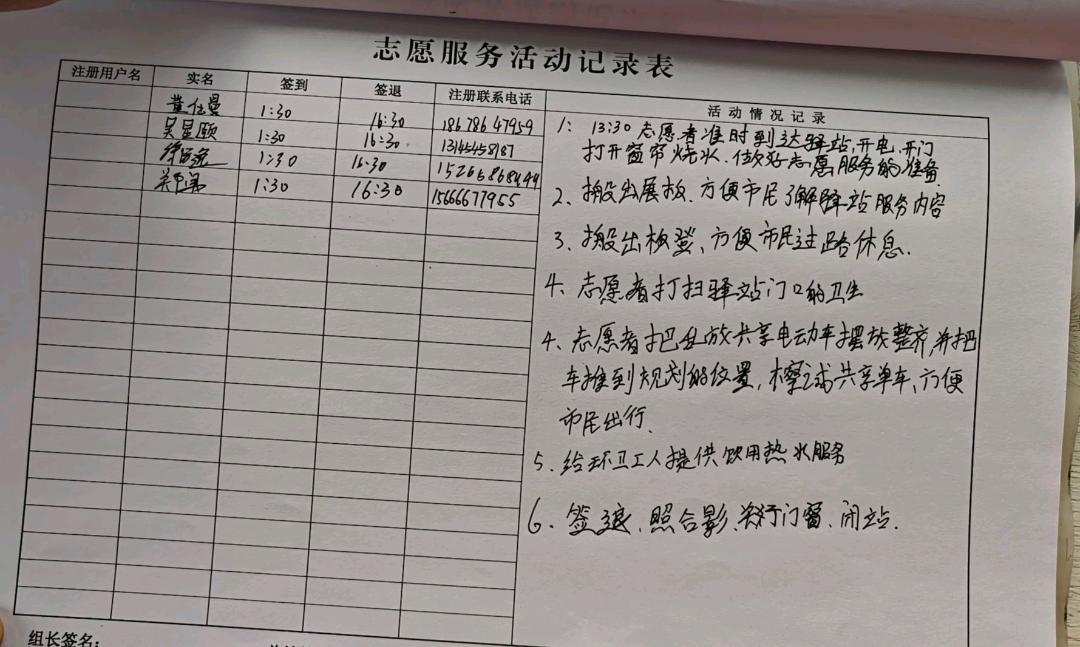 志愿服务活动记录表
注册用户名 实名 签到 签退 注册联系电话 活动情况记录
1:30 16:30 18678647959
吴显颐 1:30 16:30 13145458187
1:30 16:30 15266868444
1:30 16:30 15666677955
1: 13:30 志愿者准时到达驿站,开电,开门
打开窗帘烧水、做好志愿服务的准备.
2、搬出展板、方便市民了解驿站服务内容
3、搬出板登、方便市民过路休息.
4、志愿者打扫驿站门口的卫生
4、志愿者把乱放共享电动车摆放整齐,并把
车推到规划的位置,擦试共享单车、方便
市民出行.
5、给环卫工人提供饮用热水服务
6、签退、照合影、关门窗、闭站.
组长签名: